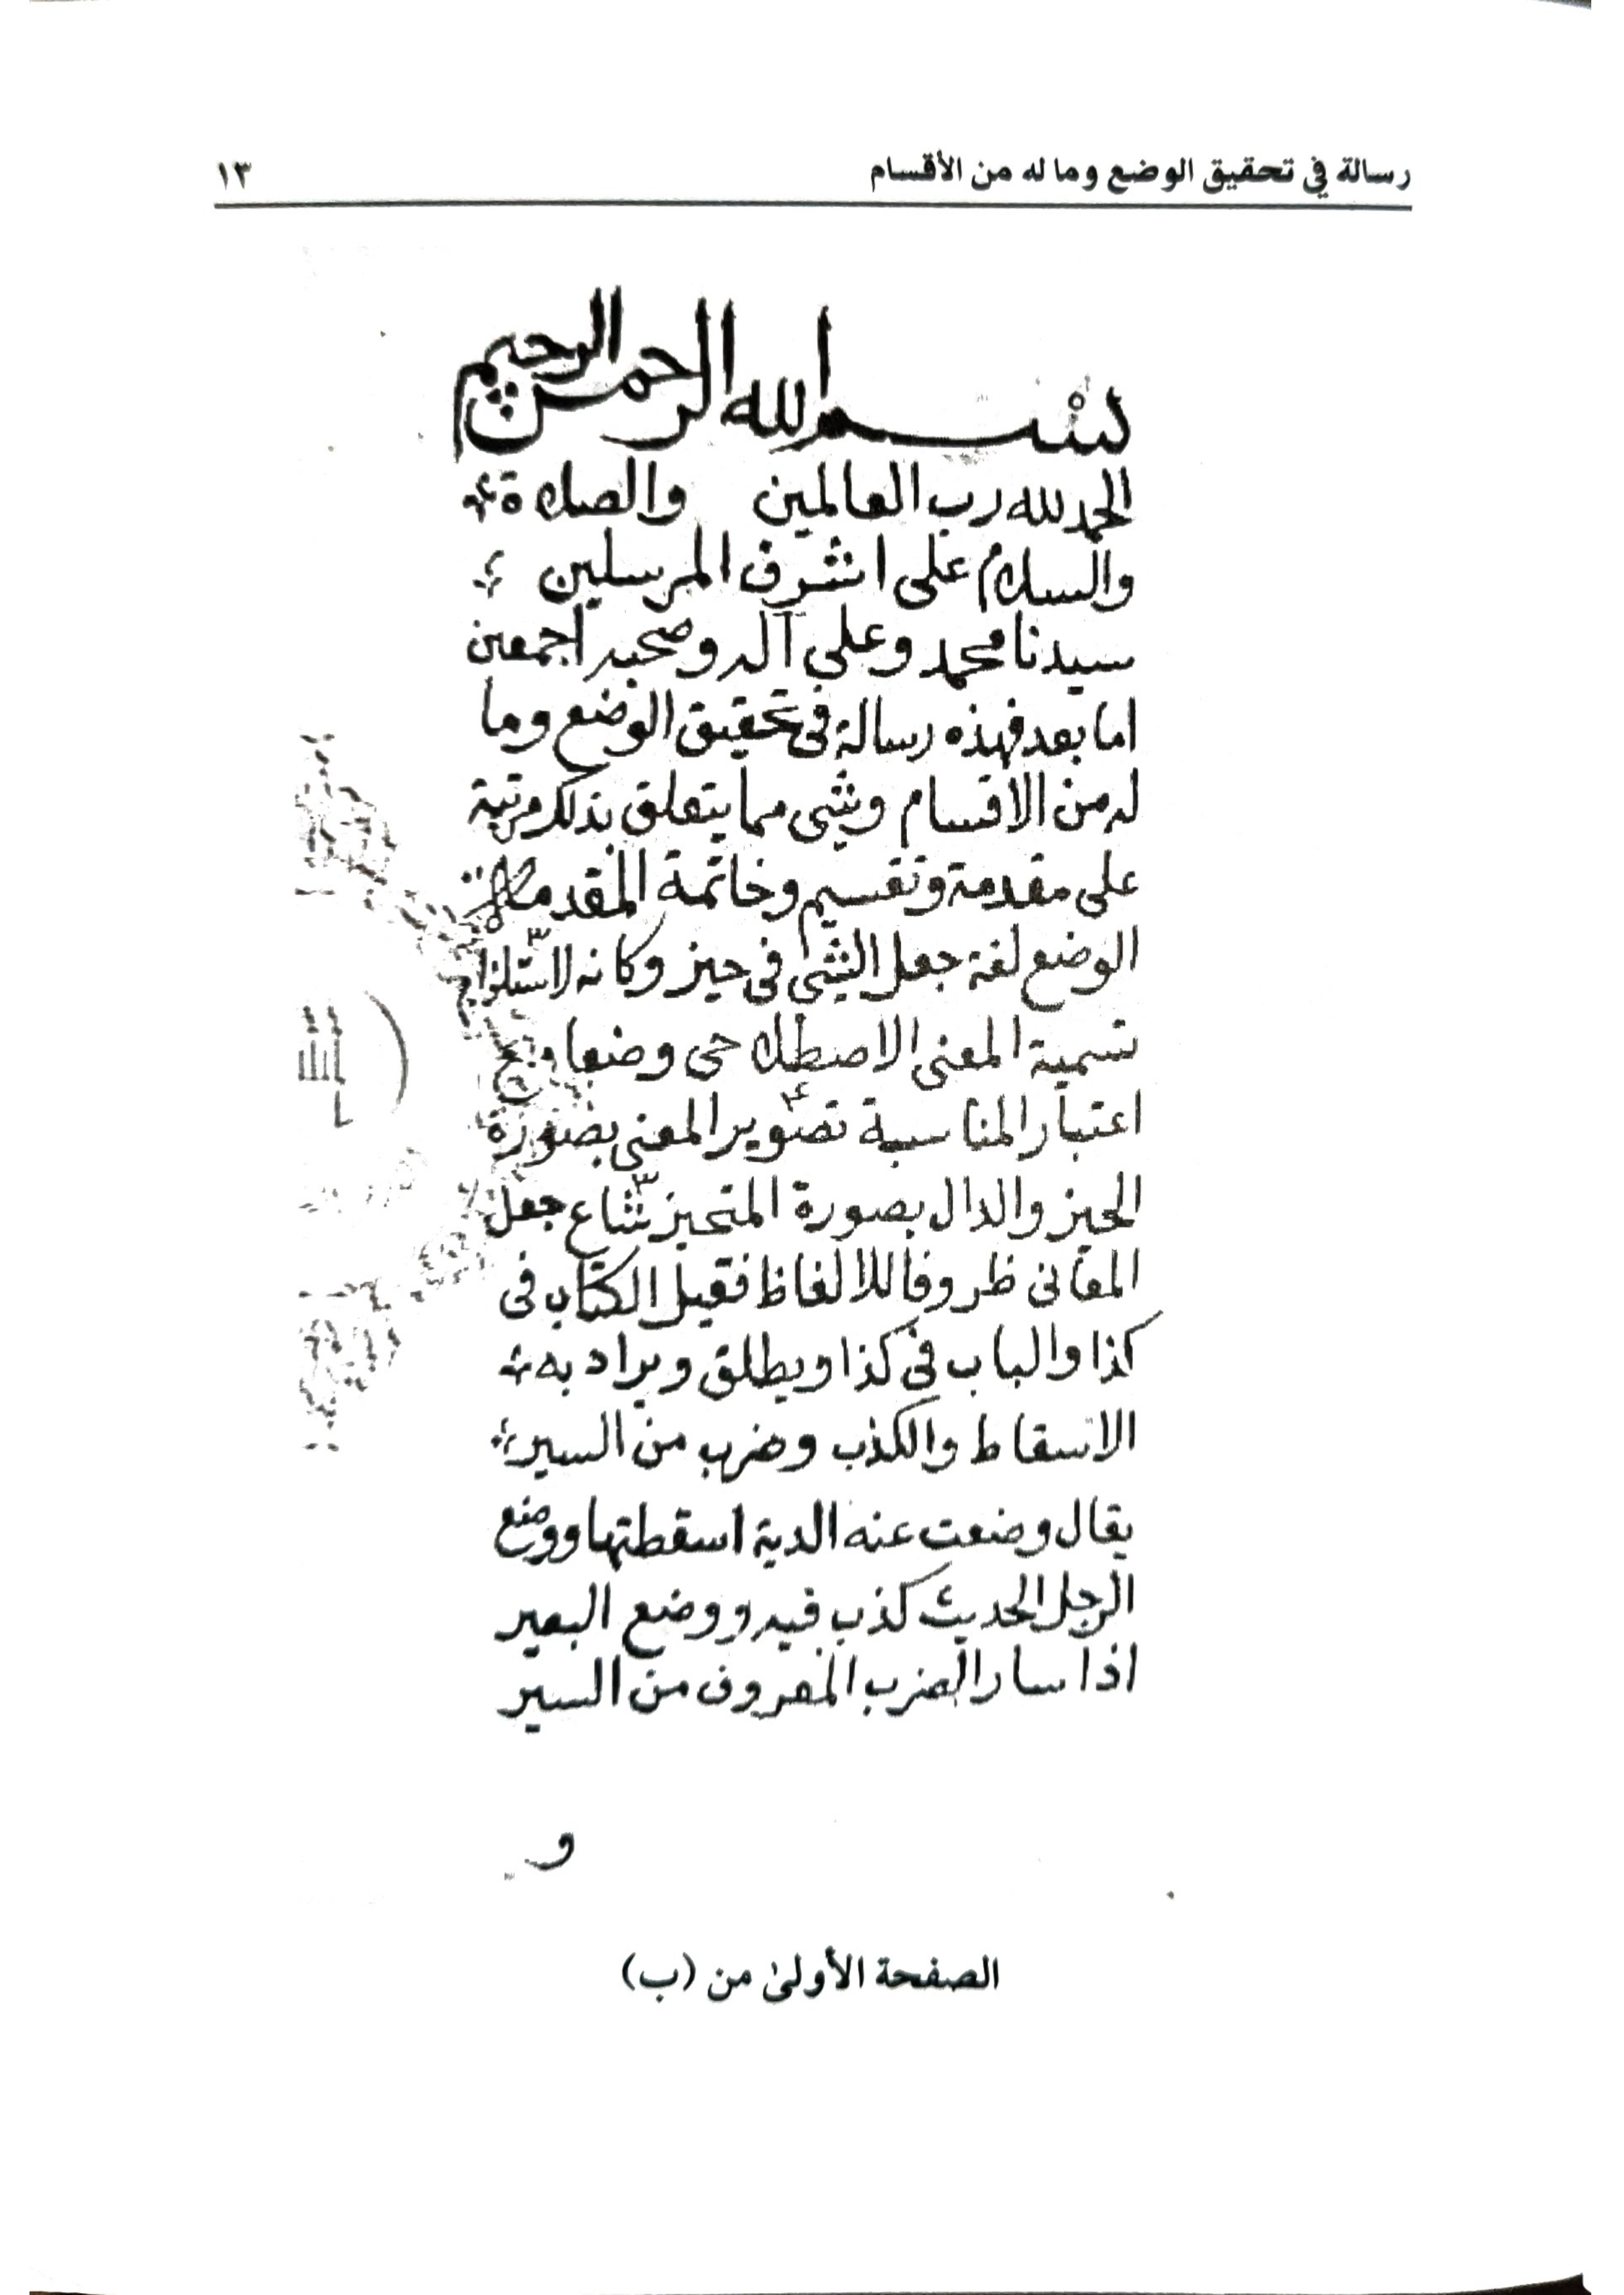 رسالة في تحقيق الوضع وما له من الأقسام
١٣
بسم الله الرحمن الرحيم
الحمد لله رب العالمين والصلاة
والسلام على اشرف المرسلين
سيدنا محمد وعلى آله وصحبه اجمعين
اما بعد فهذه رسالة فى تحقيق الوضع وما
له من الاقسام وشى مما يتعلق بذلك مرتبة
على مقدمة وتقسيم وخاتمة المقدمة
الوضع لغة جعل الشى فى حيز وكانه لاستلزام
تسمية المعنى الاصطلاحى وضعا
اعتبار المناسبة تصوير المعنى بصورة
الحيز والدال بصورة المتحيز شاع جعل
المعانى ظروفا للالفاظ فقيل الكتاب فى
كذا والباب فى كذا ويطلق ويراد به
الاسقاط والكذب وضرب من السير
يقال وضعت عنه الدية اسقطتها ووضع
الرجل الحديث كذب فيه ووضع البعير
اذا سار الضرب المعروف من السير
و
الصفحة الأولىٰ من (ب)